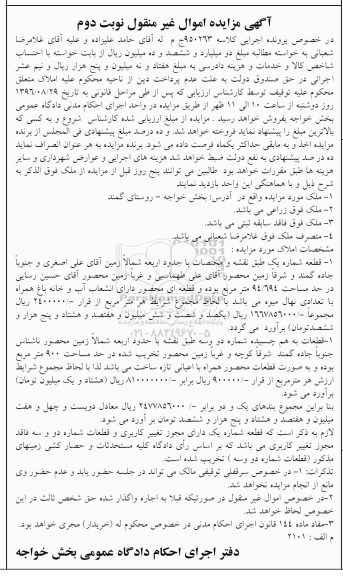 آگهی مزایده اموال غیر منقول نوبت دوم
در خصوص پرونده اجرایی کلاسه ۹۵۰۲۶۳ج م له آقای حامد علیزاده و علیه آقای غلامرضا
شعبانی به خواسته مطالبه مبلغ دو میلیارد و ششصد و ده میلیون ریال از بابت خواسته با احتساب
شاخص کالا و خدمات و هزینه دادرسی به مبلغ هفتاد و نه میلیون و پنج هزار ریال و نیم عشر
اجرائی در حق صندوق دولت به علت عدم پرداخت دین از ناحیه محکوم علیه املاک متعلق
محکوم علیه توقیف توسط کارشناس ارزیابی که پس از طی مراحل قانونی به تاریخ ۱۳۹۶/۰۸/۲۹
روز دوشنبه از ساعت ۱۰ الی ۱۱ ظهر از طریق مزایده در واحد اجرای احکام مدنی دادگاه عمومی
بخش خواجه بفروش خواهد رسید . مزایده از مبلغ ارزیابی شده کارشناس شروع و به کسی که
بالاترین مبلغ را پیشنهاد نماید فروخته خواهد شد. و ده درصد مبلغ پیشنهادی فی المجلس از برنده
مزایده اخذ و به مابقی حداکثر یکماه فرصت داده می شود. برنده مزایده به هر عنوان انصراف نماید
ده در صد پیشنهادی به نفع دولت ضبط خواهد شد هزینه های اجرایی و عوارض شهرداری و سایر
هزینه ها طبق مقررات خواهد بود طالبین می توانند پنج روز قبل از مزایده از ملک فوق الذکر به
شرح ذیل و با هماهنگی این واحد بازدید نمایند
۱- ملک مورد مزایده واقع در آدرس: بخش خواجه – روستای گمند
۲- ملک فوق زراعی می باشد.
۳- ملک فوق فاقد سابقه ثبتی می باشد.
۴- متصرف ملک فوق غلامرضا شعبانی می باشد.
مشخصات املاک مورد مزایده :
۱- قطعه شماره یک طبق نقشه و مختصات با حدود اربعه شمالا زمین آقای علی اصغری و جنوباً
جاده گمند و شرقا زمین محصور آقای علی طهماسبی و غربا زمین محصور آقای حسین رسایی
در حد مساحت ۶۹۴/۹۴ متر مربع بوده و قطعه ای محصور دارای انشعاب آب و خانه باغ همراه
با تعدادی نهال میوه می باشد با لحاظ مجموع شرایط هر متر مربع از قرار -/۲۴۰۰۰۰۰ ریال
مجموعاً -/۱۶۶۷۸۵۶۰۰۰ ریال (یکصد و شصت و شش میلیون و هفتصد و هشتاد و پنج هزار و
ششصدتومان) برآورد می گردد.
۱-قطعات به هم چسبیده شماره دو وسه طبق نقشه با حدود اربعه شمالاً زمین محصور ناشناس
جنوباً جاده گمند شرقا کوچه و غربا زمین محصور تخریب شده در حد مساحت ۹۰۰ متر مربع
بوده و به صورت قطعات محصور همراه با اعیانی تازه ساخت می باشد لذا با لحاظ مجموع شرایط
ارزش هر مترمربع از قرار -/۹۰۰۰۰۰ ریال برابر -/۸۱۰۰۰۰۰۰۰ ریال (هشتاد و یک میلیون تومان)
برآورد می شود.
بنا براین مجموع بندهای یک و دو برابر -/۲۴۷۷۸۵۶۰۰۰ ریال معادل دویست و چهل و هفت
میلیون و هفتصد و هشتاد و پنج هزار و ششصد تومان بر آورد می شود.
لازم به ذکر است که قطعه شماره یک دارای مجوز تغییر کاربری و قطعات شماره دو و سه فاقد
مجوز تغییر کاربری می باشد که بر اساس رأی دادگاه کلیه مستحدثات و حصار کشی زمینهای
مذکور (قطعات شماره دو وسه ) تخریب شده است.
تذکرات: ۱- در خصوص سرقفلی توقیفی مالک می تواند در جلسه حضور یابد و عدم حضور وی
مانع از انجام مزایده نخواهد شد.
۲-در خصوص اموال غیر منقول در صورتیکه قبلا به اجاره واگذار شده حق شخص ثالث در این
خصوص لحاظ خواهد شد.
۳-مفاد ماده ۱۴۴ قانون اجرای احکام مدنی در خصوص محکوم له (خریدار) مجری خواهد بود.
م الف : ۲۱۰۱
دفتر اجرای احکام دادگاه عمومی بخش خواجه